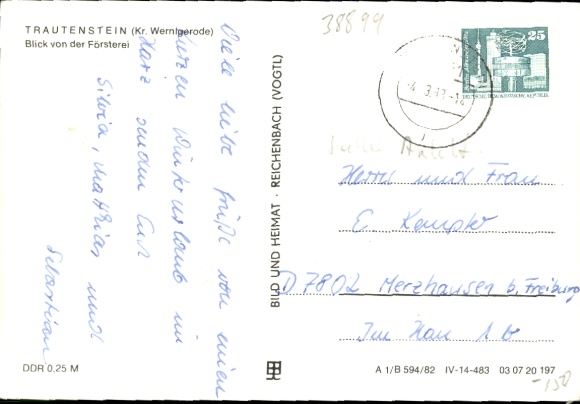 TRAUTENSTEIN (Kr. Wernigerode)
Blick von der Försterei
Viele liebe Grüße von einem
kurzen Winterurlaub im
Harz senden Euch
Silvia, Mathias und
Sebastian
DDR 0,25 M
BILD UND HEIMAT · REICHENBACH (VOGTL)
38899
25
DEUTSCHE DEMOKRATISCHE REPUBLIK
Herrn und Frau
E. Kempter
D 7802 Merzhausen b. Freiburg
Im
A 1/B 594/82 IV-14-483 03 07 20 197
-150